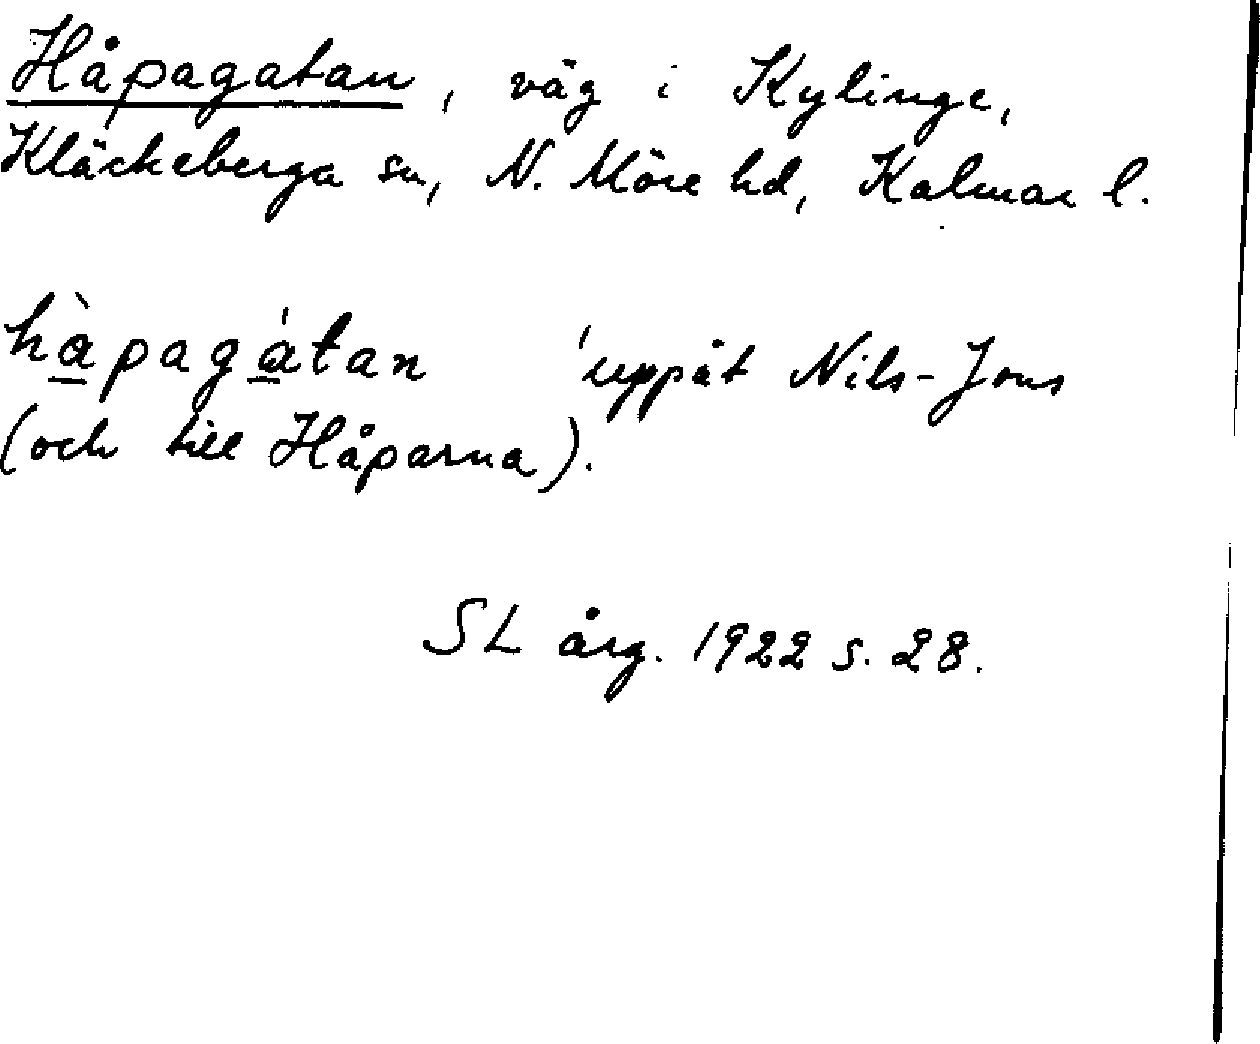 Håpagatan, väg i Kylinge,
Kläckeberga sn, N. Möre hd, Kalmar l.
hàpagátan 'uppåt Nils-Jons
(och till Håparna).
SL årg. 1922 s. 28.